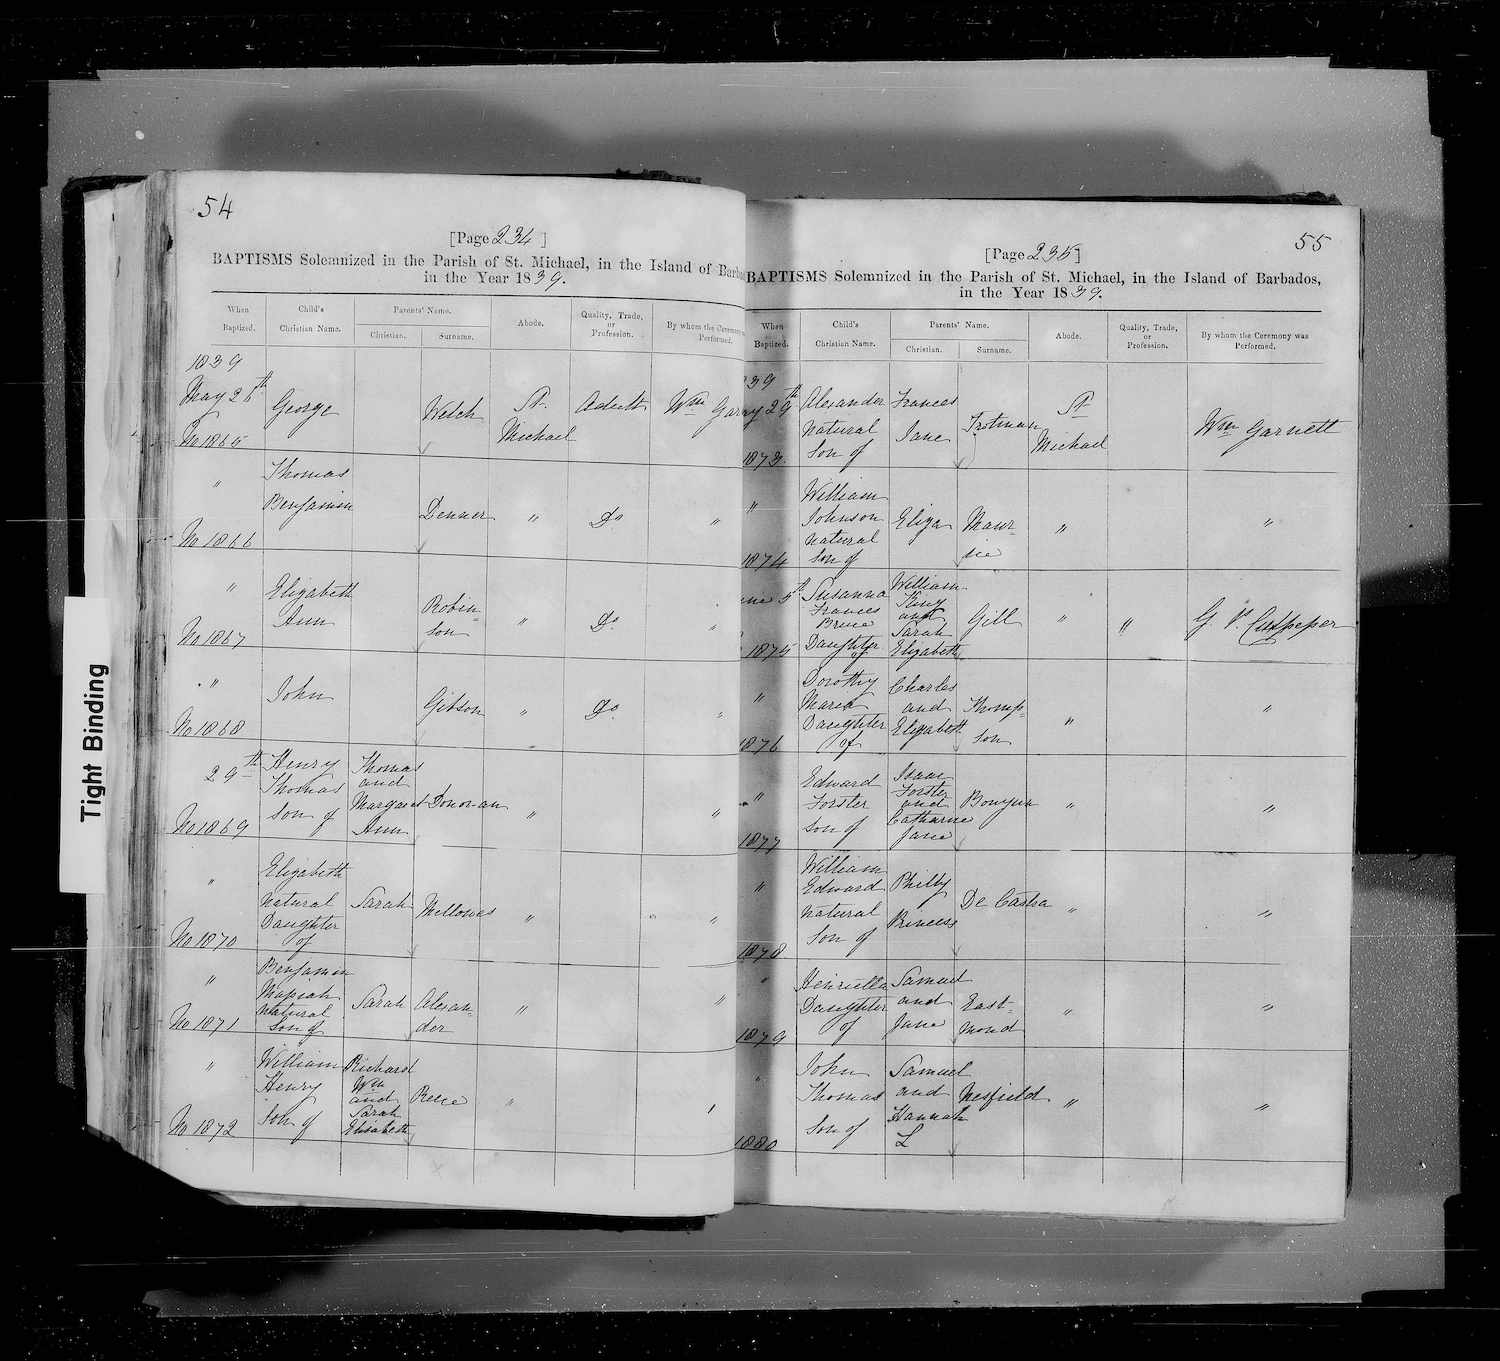 Tight Binding
54
[Page 234 ]
BAPTISMS Solemnized in the Parish of St. Michael, in the Island of Barba
in the Year 1839.
When Baptized.
Child's Christian Name.
Parents' Name.
Christian.
Surname.
Abode.
Quality, Trade, or Profession.
By whom the Ceremony was Performed.
1839
May 26th
No 1865
George
Welch
St. Michael
Adult
Wm Gar
"
No 1866
Thomas
Benjamin
Denner
"
Do
"
"
No 1867
Elizabeth
Ann
Robin-
son
"
Do
"
"
No 1868
John
Gibson
"
Do
"
29th
No 1869
Henry
Thomas
Son of
Thomas
and
Margaret
Ann
Donovan
"
"
"
No 1870
Elizabeth
Natural
Daughter
of
Sarah
Mellowes
"
"
"
No 1871
Benjamin
Natural
Son of
Sarah
Alexan-
der
"
"
"
No 1872
William
Henry
Son of
Richard
Wm
and
Sarah
Elisabeth
Reece
"
"
55
[Page 235]
BAPTISMS Solemnized in the Parish of St. Michael, in the Island of Barbados,
in the Year 1839.
When Baptized.
Child's Christian Name.
Parents' Name.
Christian.
Surname.
Abode.
Quality, Trade, or Profession.
By whom the Ceremony was Performed.
39
ay 29th
1873
Alexander
Natural
Son of
Frances
Jane
Trotman
St
Michael
Wm Garnett
"
1874
William
Johnson
Natural
Son of
Eliza
Maur-
ice
"
"
une 5th
1875
Susanna
Frances
Bruce
Daughter
of
William
King
and
Sarah
Elizabeth
Gill
"
"
G. P. Culpeper
"
1876
Dorothy
Maria
Daughter
of
Charles
and
Elizabeth
Thomp-
son
"
"
"
1877
Edward
Forster
Son of
Isaac
Forster
and
Catharine
Jane
Bowyer
"
"
"
1878
William
Edward
Natural
Son of
Philly
Princess
De Castra
"
"
"
1879
Henrietta
Daughter
of
Samuel
and
Jane
East-
mond
"
"
"
1880
John
Thomas
Son of
Samuel
and
Hannah
L
Nesfield
"
"